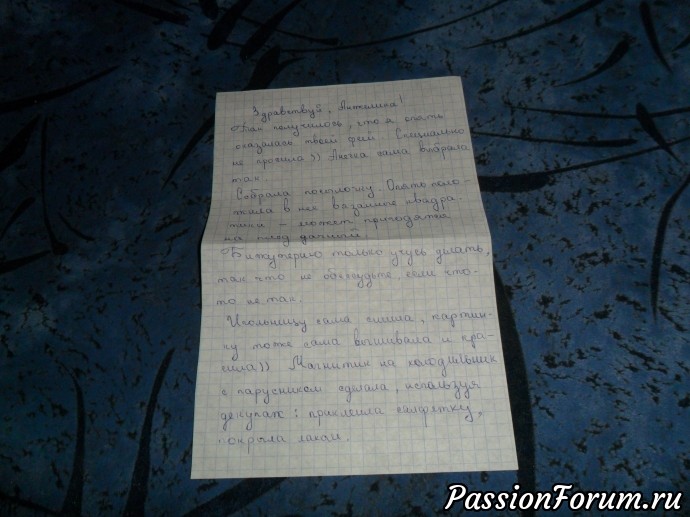 Здравствуй, Ангелина!
Так получилось, что я опять
оказалась твоей феей. Специально
не просила)) Анечка сама выбрала
так.
Собрала посылочку. Опять поло-
жила в нее вязанные квадра-
тики - может пригодятся
на плед дачный.
Бижутерию только учусь делать,
так что не обессудьте, если что-
то не так.
Игольницу сама сшила, картин-
ку тоже сама вышивала и кра-
сила)) Магнитик на холодильник
с парусником сделала, используя
декупаж: приклеила салфетку,
покрыла лаком.
PassionForum.ru